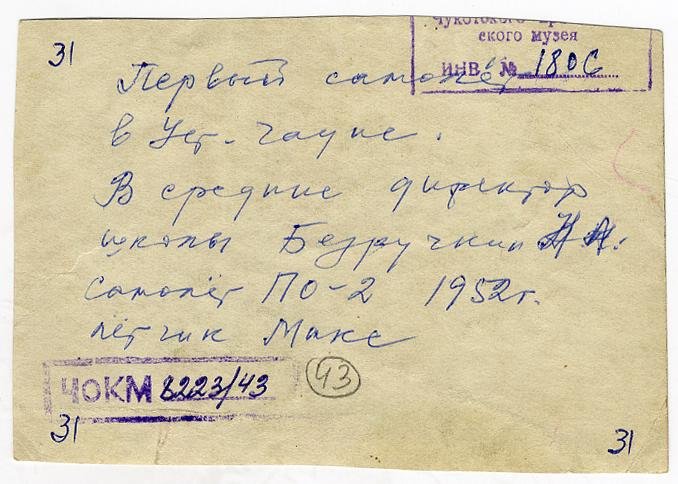 31
Чукотского
ского музея
ИНВ. № 1806
Первый самолёт
в Уст-Чауне.
В средине директор
школы Безручкин Н А.
самолёт ПО-2 1952г.
лётчик Макс
ЧОКМ 8223/43
43
31
31